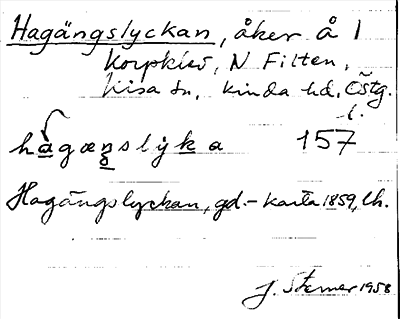 Hagängslyckan, åker å 1
Korpklev, N Filten,
Kisa sn, Kinda hd, Östg.
l.
hagæŋslyka 157
Hagängslyckan, gd. - karta 1859, lh.
J. Sterner 1958